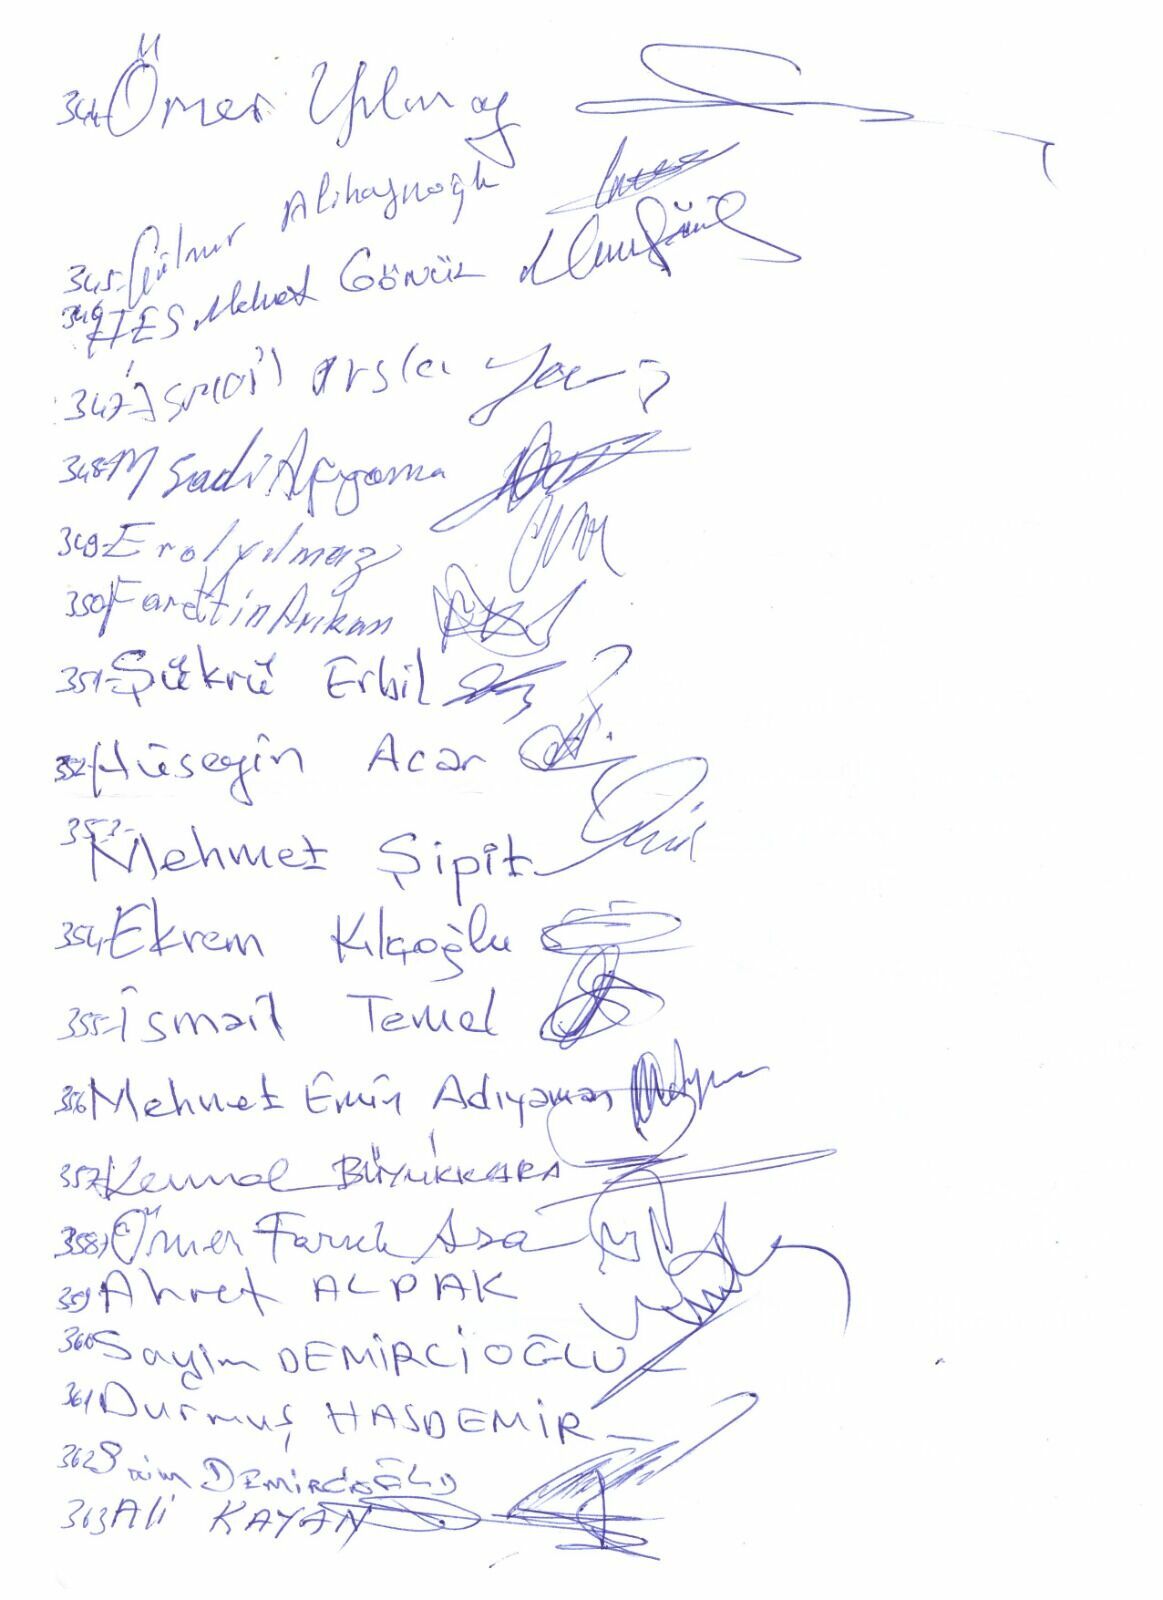 344- Ömer Yılmaz
345- Gülnur Alihaynoğlu
346- Mehmet GÖNÜL
347- İsmail Arslan
348- M Sadi
349- Erol Yılmaz
350- Farettin Arıkan
351- Şükrü Erbil
352- Hüseyin Acar
353- Mehmet Şipit
354- Ekrem Kılçoğlu
355- İsmail Temel
356- Mehmet Emin Adıyaman
357- Kemal BÜYÜKKARA
358- Ömer Faruk Asa
359- Ahmet ALPAK
360- Sayim DEMİRCİOĞLU
361- Durmuş HASDEMİR
362- Saim DEMİRCİOĞLU
363- Ali KAYAN